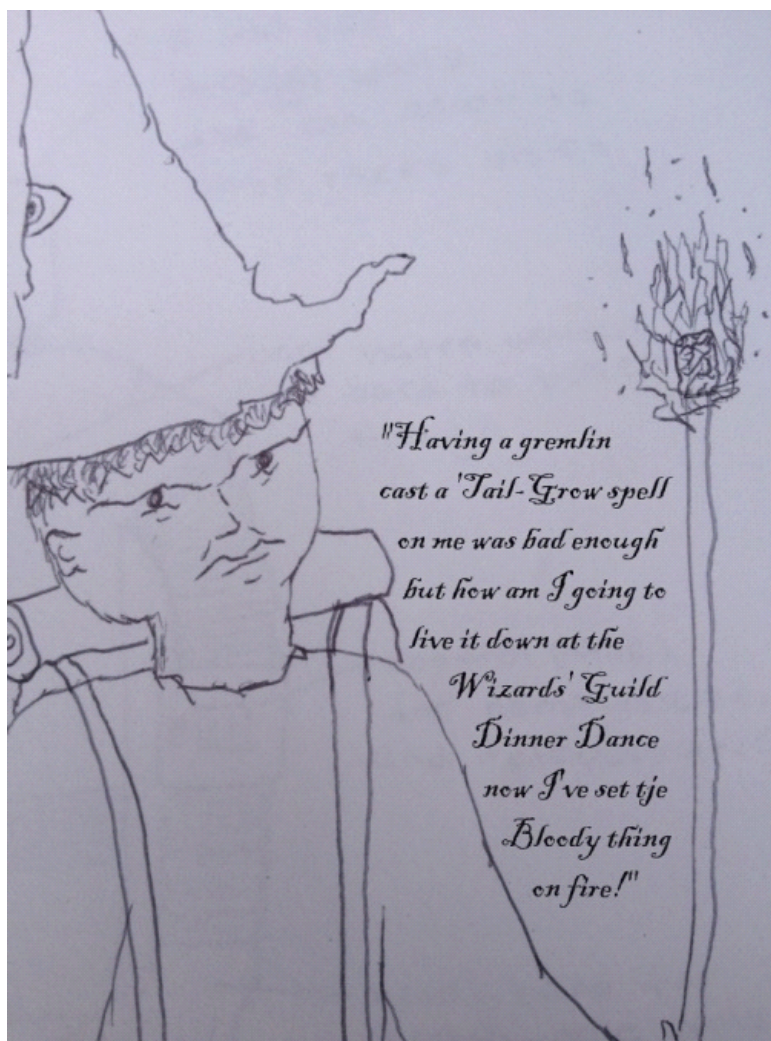 "Having a gremlin
cast a 'Tail-Grow spell
on me was bad enough
but how am I going to
live it down at the
Wizards' Guild
Dinner Dance
now I've set tje
Bloody thing
on fire!"